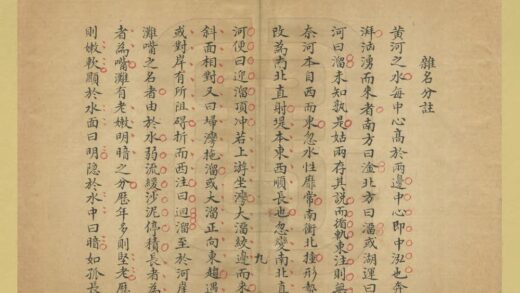 雜名分註
黃河之水每中心高於兩邊中心即中泓也奔
湃洶湧而來者南方曰淦北方曰溜或湖運曰
河曰溜未知孰是姑兩存其說而循軌東注則無
奈河本自西而東忽水性靡常南衝北撞形勢
改為南北直射堤本東西順長也忽變南北直
九
河便曰迎溜頂冲若上游坐灣大溜絞邊而来
斜面相對又曰埽灣拖溜或大溜正向東趨遇
或對岸有所阻碍折而西注曰迴溜至於河崖
灘嘴之名者由於水弱流緩沙泥停積長者為
者為嘴灘有老嫩明暗之分歷年多則堅老歷
則嫩軟顯於水面曰明隐於水中曰暗如孤長